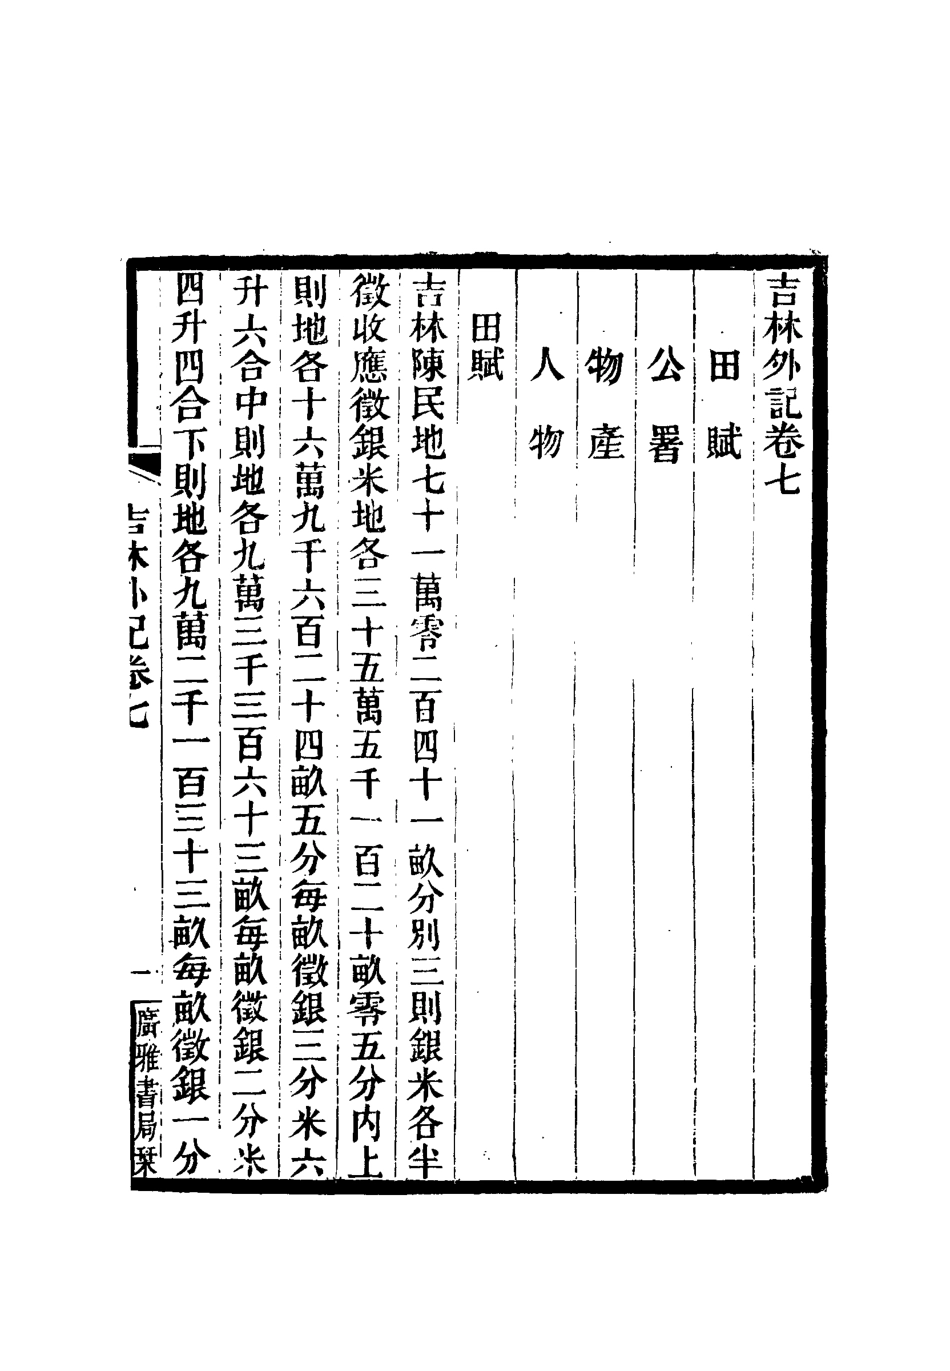 吉林外記卷七
田賦
公署
物產
人物
田賦
吉林陳民地七十一萬零二百四十一畝分別三則銀米各半
徵收應徵銀米地各三十五萬五千一百二十畝零五分內上
則地各十六萬九千六百二十四畝五分每畝徵銀三分米六
升六合中則地各九萬三千三百六十三畝每畝徵銀二分米
四升四合下則地各九萬二千一百三十三畝每畝徵銀一分
吉林外記卷七
一
廣雅書局栞